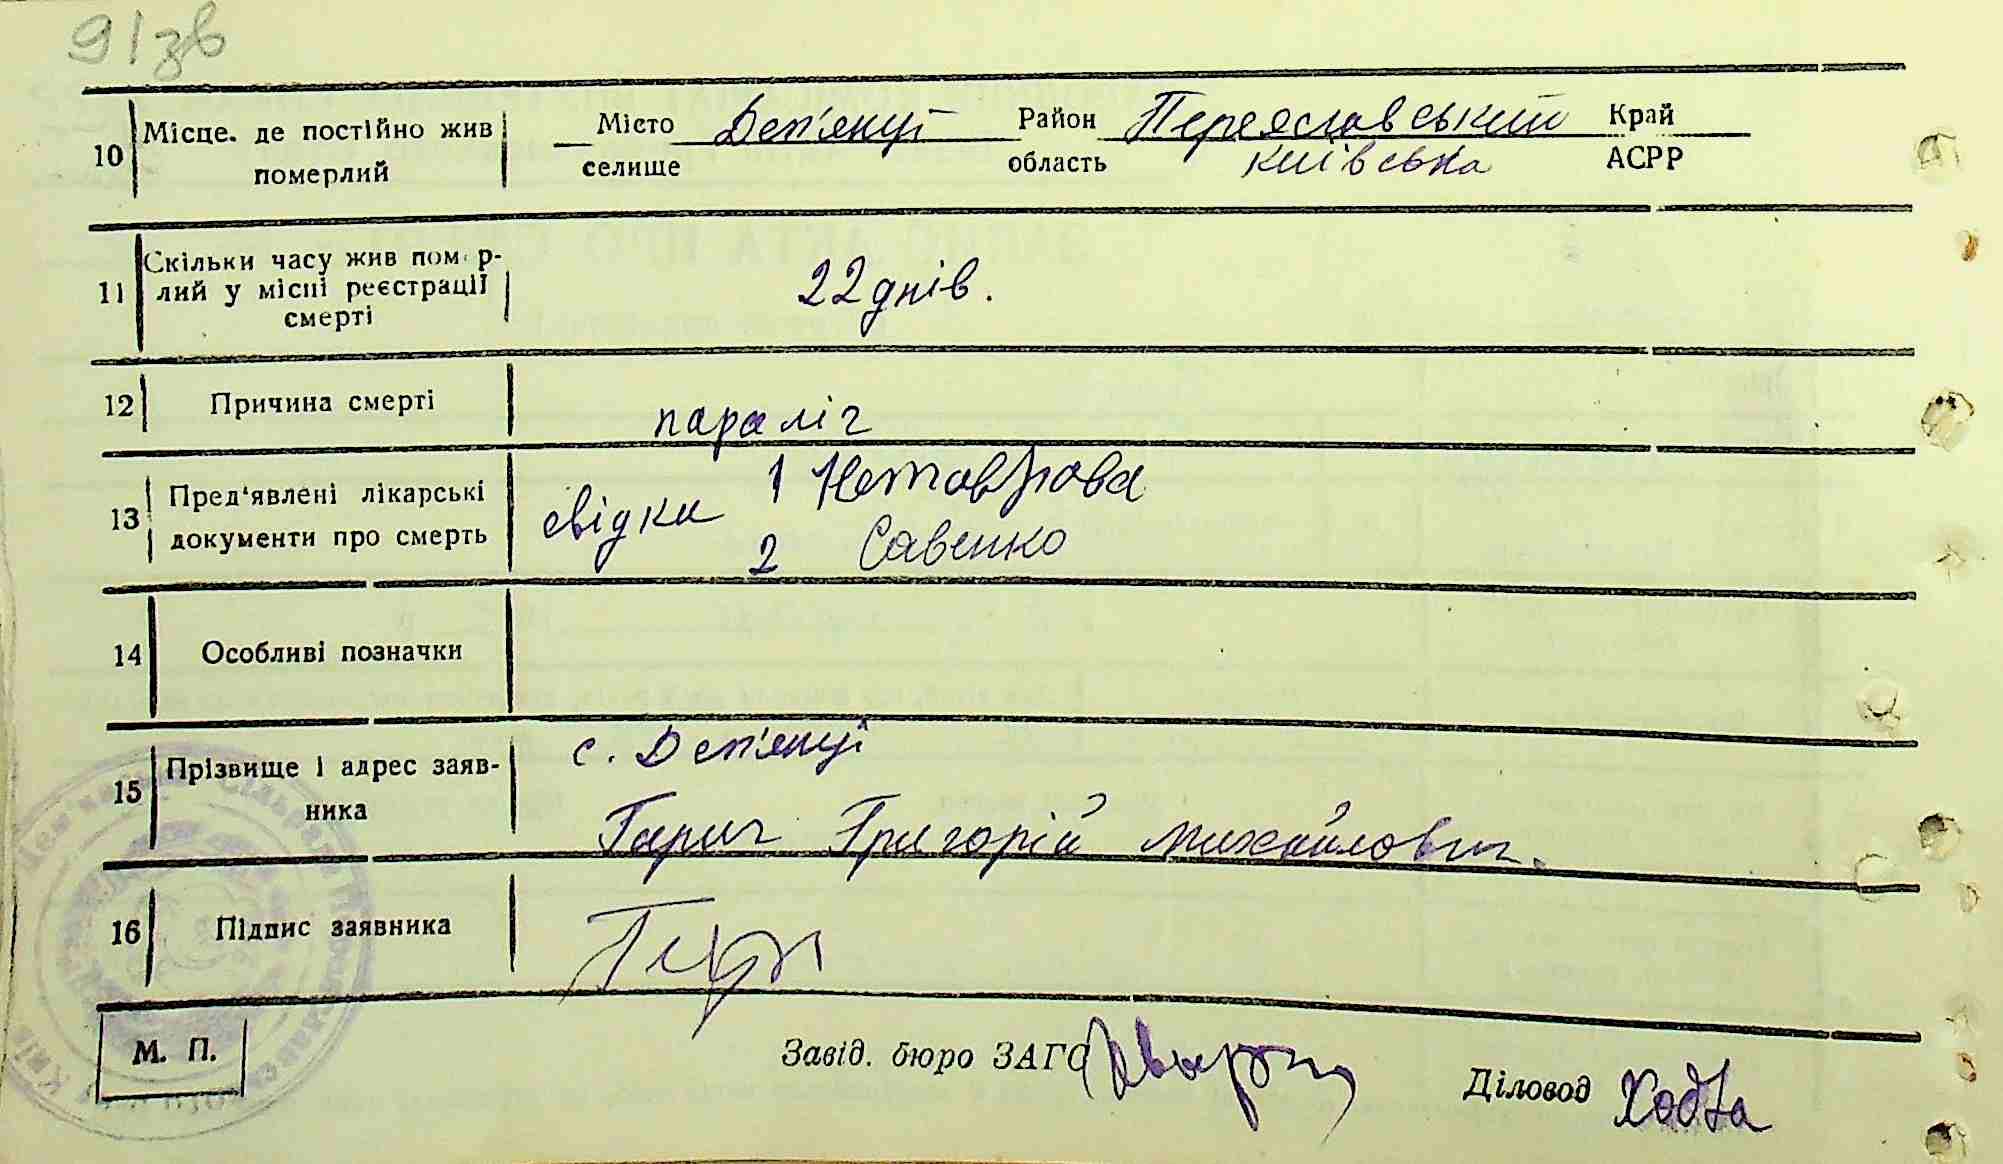 91зв
10 Місце. де постійно жив померлий Місто селище Дем'янці Район область Переяславський Київська Край АСРР
11 Скільки часу жив помер-
лий у місці реєстрації
смерті 22 днів.
12 Причина смерті параліч
13 Пред'явлені лікарські
документи про смерть свідки 1 Нетоврова
2 Савенко
14 Особливі позначки
15 Прізвище і адрес заяв-
ника с. Дем'янці
Гарич Григорій Михайлович.
16 Підпис заявника
М. П.
Завід. бюро ЗАГС
Діловод